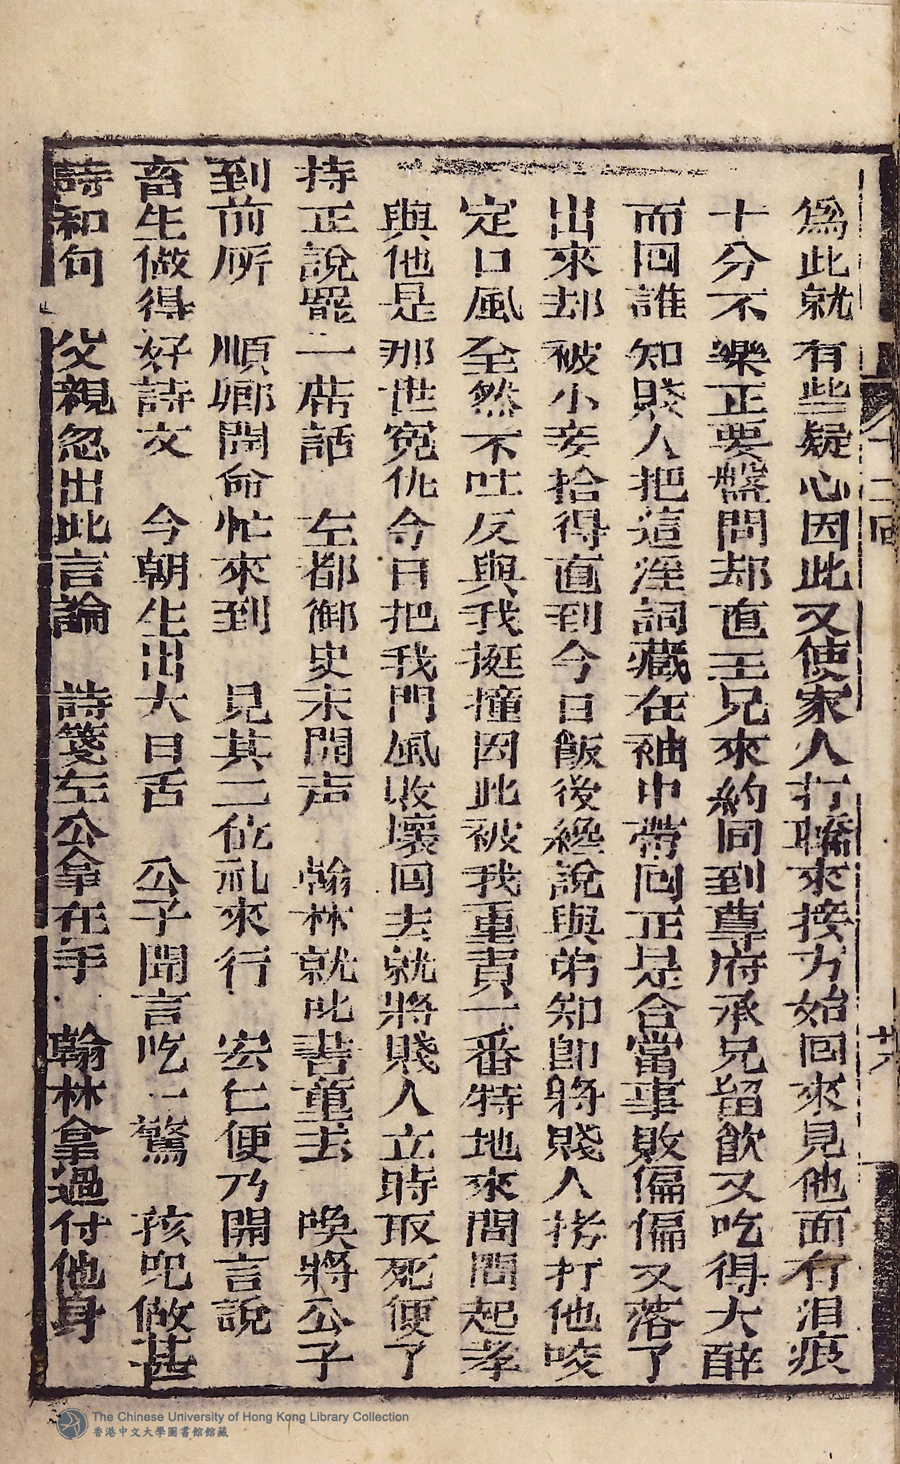 為此就有些疑心因此又使家人打轎來接方始回來見他面有泪痕
十分不樂正要盤問却直王兄來約同到尊府承兄留飲又吃得大醉
而回誰知賤人把這淫詞藏在袖中帶回正是合當事敗偏偏又落了
出來却被小妾拾得直到今日飯後纔說與弟知即將賤人拷打他咬
定口風至然不吐反與我挺撞因此被我重責一番特地來問問起孝
與他是那世冤仇今日把我門風敗壞回去就將賤人立時取死便了
持正說罷一席話　左都御史未開声　翰林就叱書童去　喚將公子
到前所　順卿聞命忙來到　見其二位礼來行　宏仁便乃開言說
畜生做得好詩文　今朝生出大口舌　公子聞言吃一驚　孩兒做甚
詩和句　父親忽出此言論　詩箋左公拿在手　翰林拿過付他身
十二回
廿六
The Chinese University of Hong Kong Library Collection
香港中文大學圖書館館藏